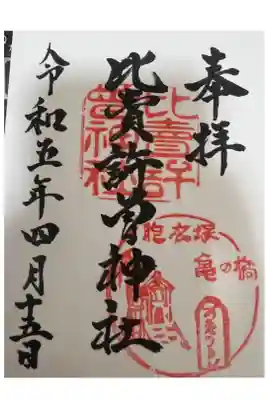 奉拝
比賣許曽神社
令和五年四月十五日
比賣許曽神社
胞衣塚
亀の橋